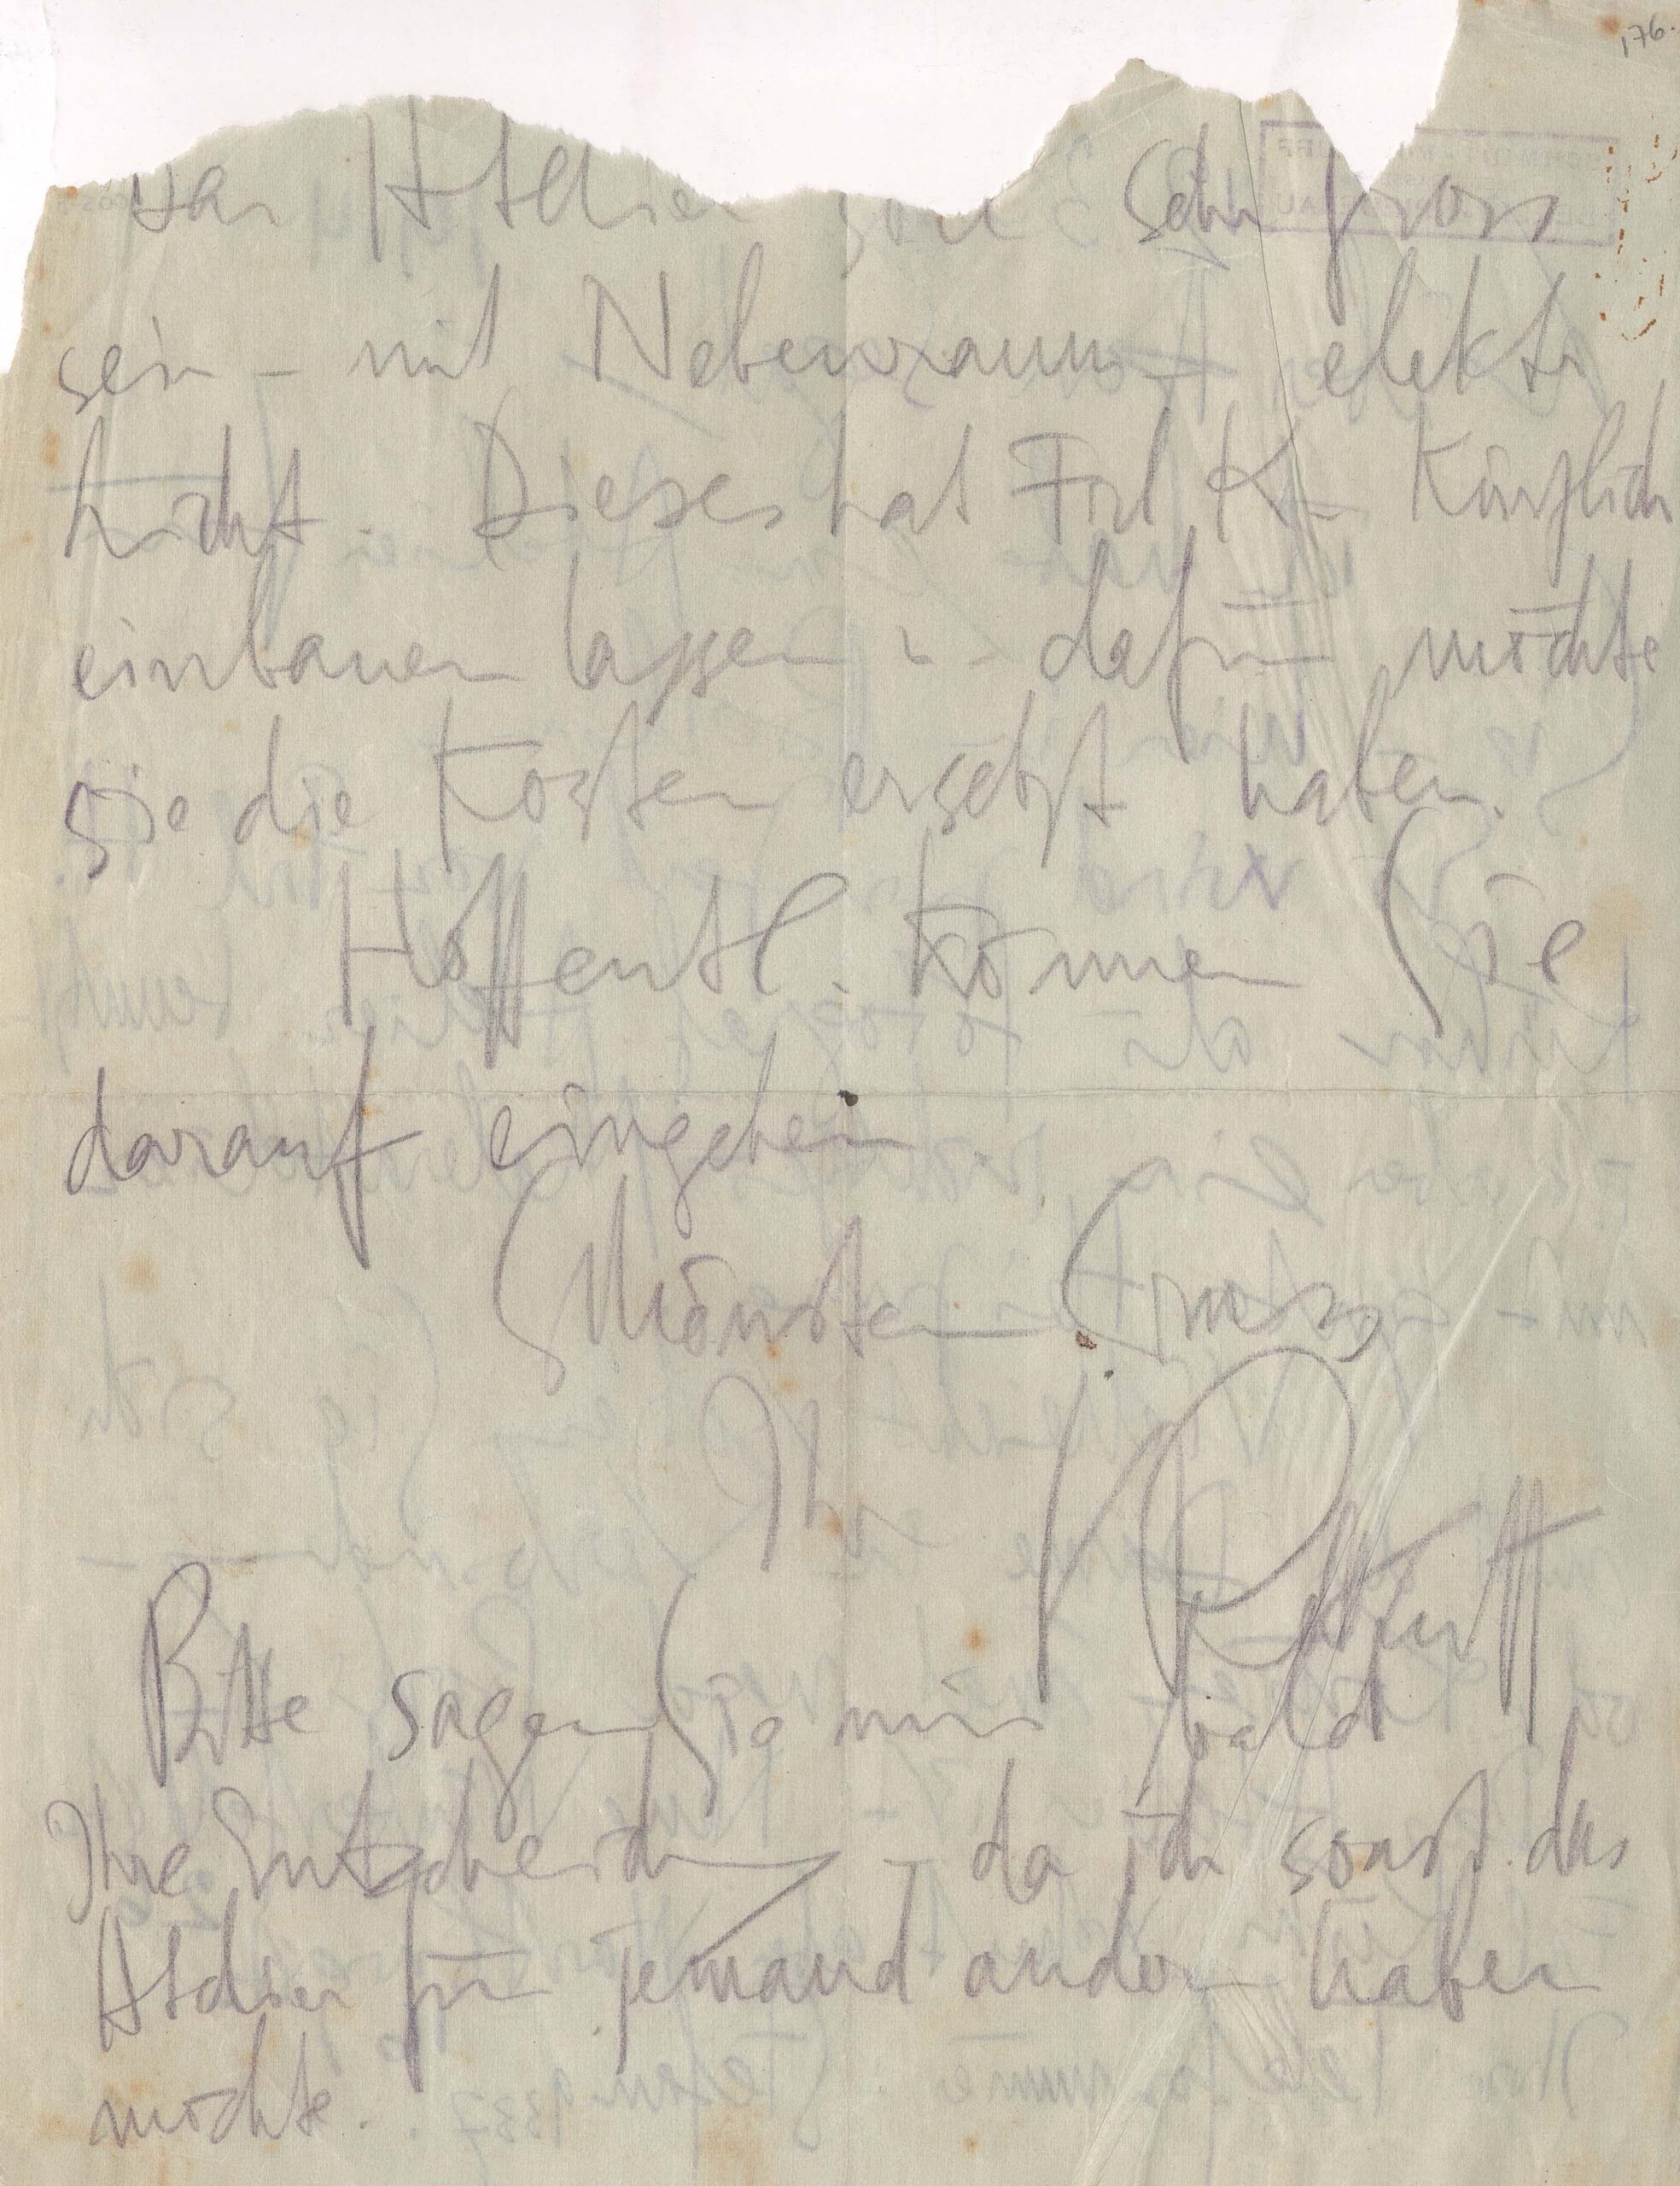 176.
Das Atelier soll sehr gross
sein – mit Nebenraum – elektr
Licht. Dieses hat Frl K. – kürzlich
einbauen lassen u. dafür möchte
sie die Kosten ersetzt haben.
Hoffentl. können Sie
darauf eingehen.
Schönsten Gruss
Ihr
Bitte sagen Sie mir bald
Ihre Entscheidung – da ich sonst das
Atelier für jemand andern haben
möchte.